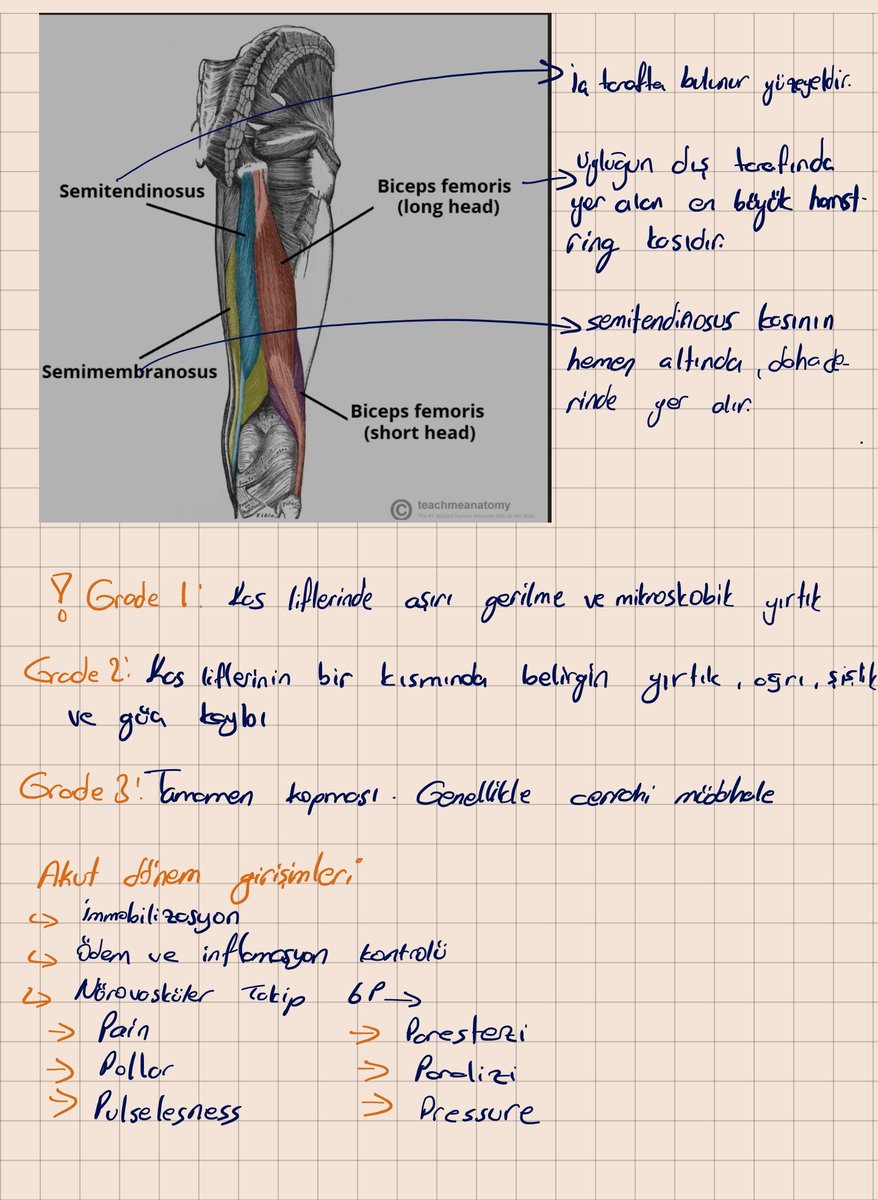 Semitendinosus
Biceps femoris
(long head)
Semimembranosus
Biceps femoris
(short head)
teachmeanatomy
İç tarafta bulunur yüzeyeldir.
Uyluğun dış tarafında
yer alan en büyük hamst-
ring kasıdır.
semitendinosus kasının
hemen altında, daha de-
rinde yer alır.
Grade 1: Kas liflerinde aşırı gerilme ve mikroskobik yırtık
Grade 2: Kas liflerinin bir kısmında belirgin yırtık, ağrı, şişlik
ve güç kaybı
Grade 3: Tamamen kopması. Genellikle cerrahi müdahale
Akut dönem girişimleri
İmmobilizasyon
Ödem ve inflamasyon kontrolü
Nörovasküler Takip 6P →
→ Pain → Parestezi
→ Pallor → Paralizi
→ Pulselesness → Pressure